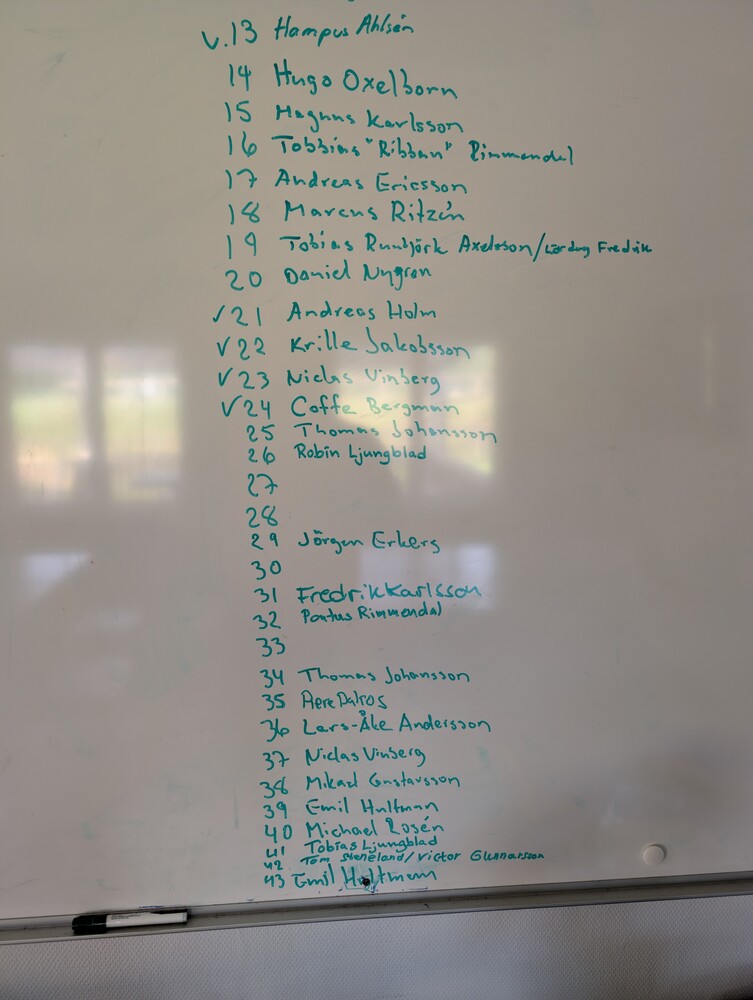 v.13 Hampus Ahlsén
14 Hugo Oxelborn
15 Magnus Karlsson
16 Tobbias "Ribban" Rimmendal
17 Andreas Ericsson
18 Marcus Ritzén
19 Tobias Runbjörk Axelsson/Lördag Fredrik
20 Daniel Nygren
✓21 Andreas Holm
✓22 Krille Jakobsson
✓23 Niclas Vinberg
✓24 Coffe Bergman
25 Thomas Johansson
26 Robin Ljungblad
27
28
29 Jörgen Erkers
30
31 Fredrik Karlsson
32 Pontus Rimmendal
33
34 Thomas Johansson
35
36 Lars-Åke Andersson
37 Niclas Vinberg
38 Mikael Gustavsson
39 Emil Hultman
40 Michael Rosén
41 Tobias Ljungblad
42 Tom Steneland/Victor Gunnarsson
43 Emil Hultman